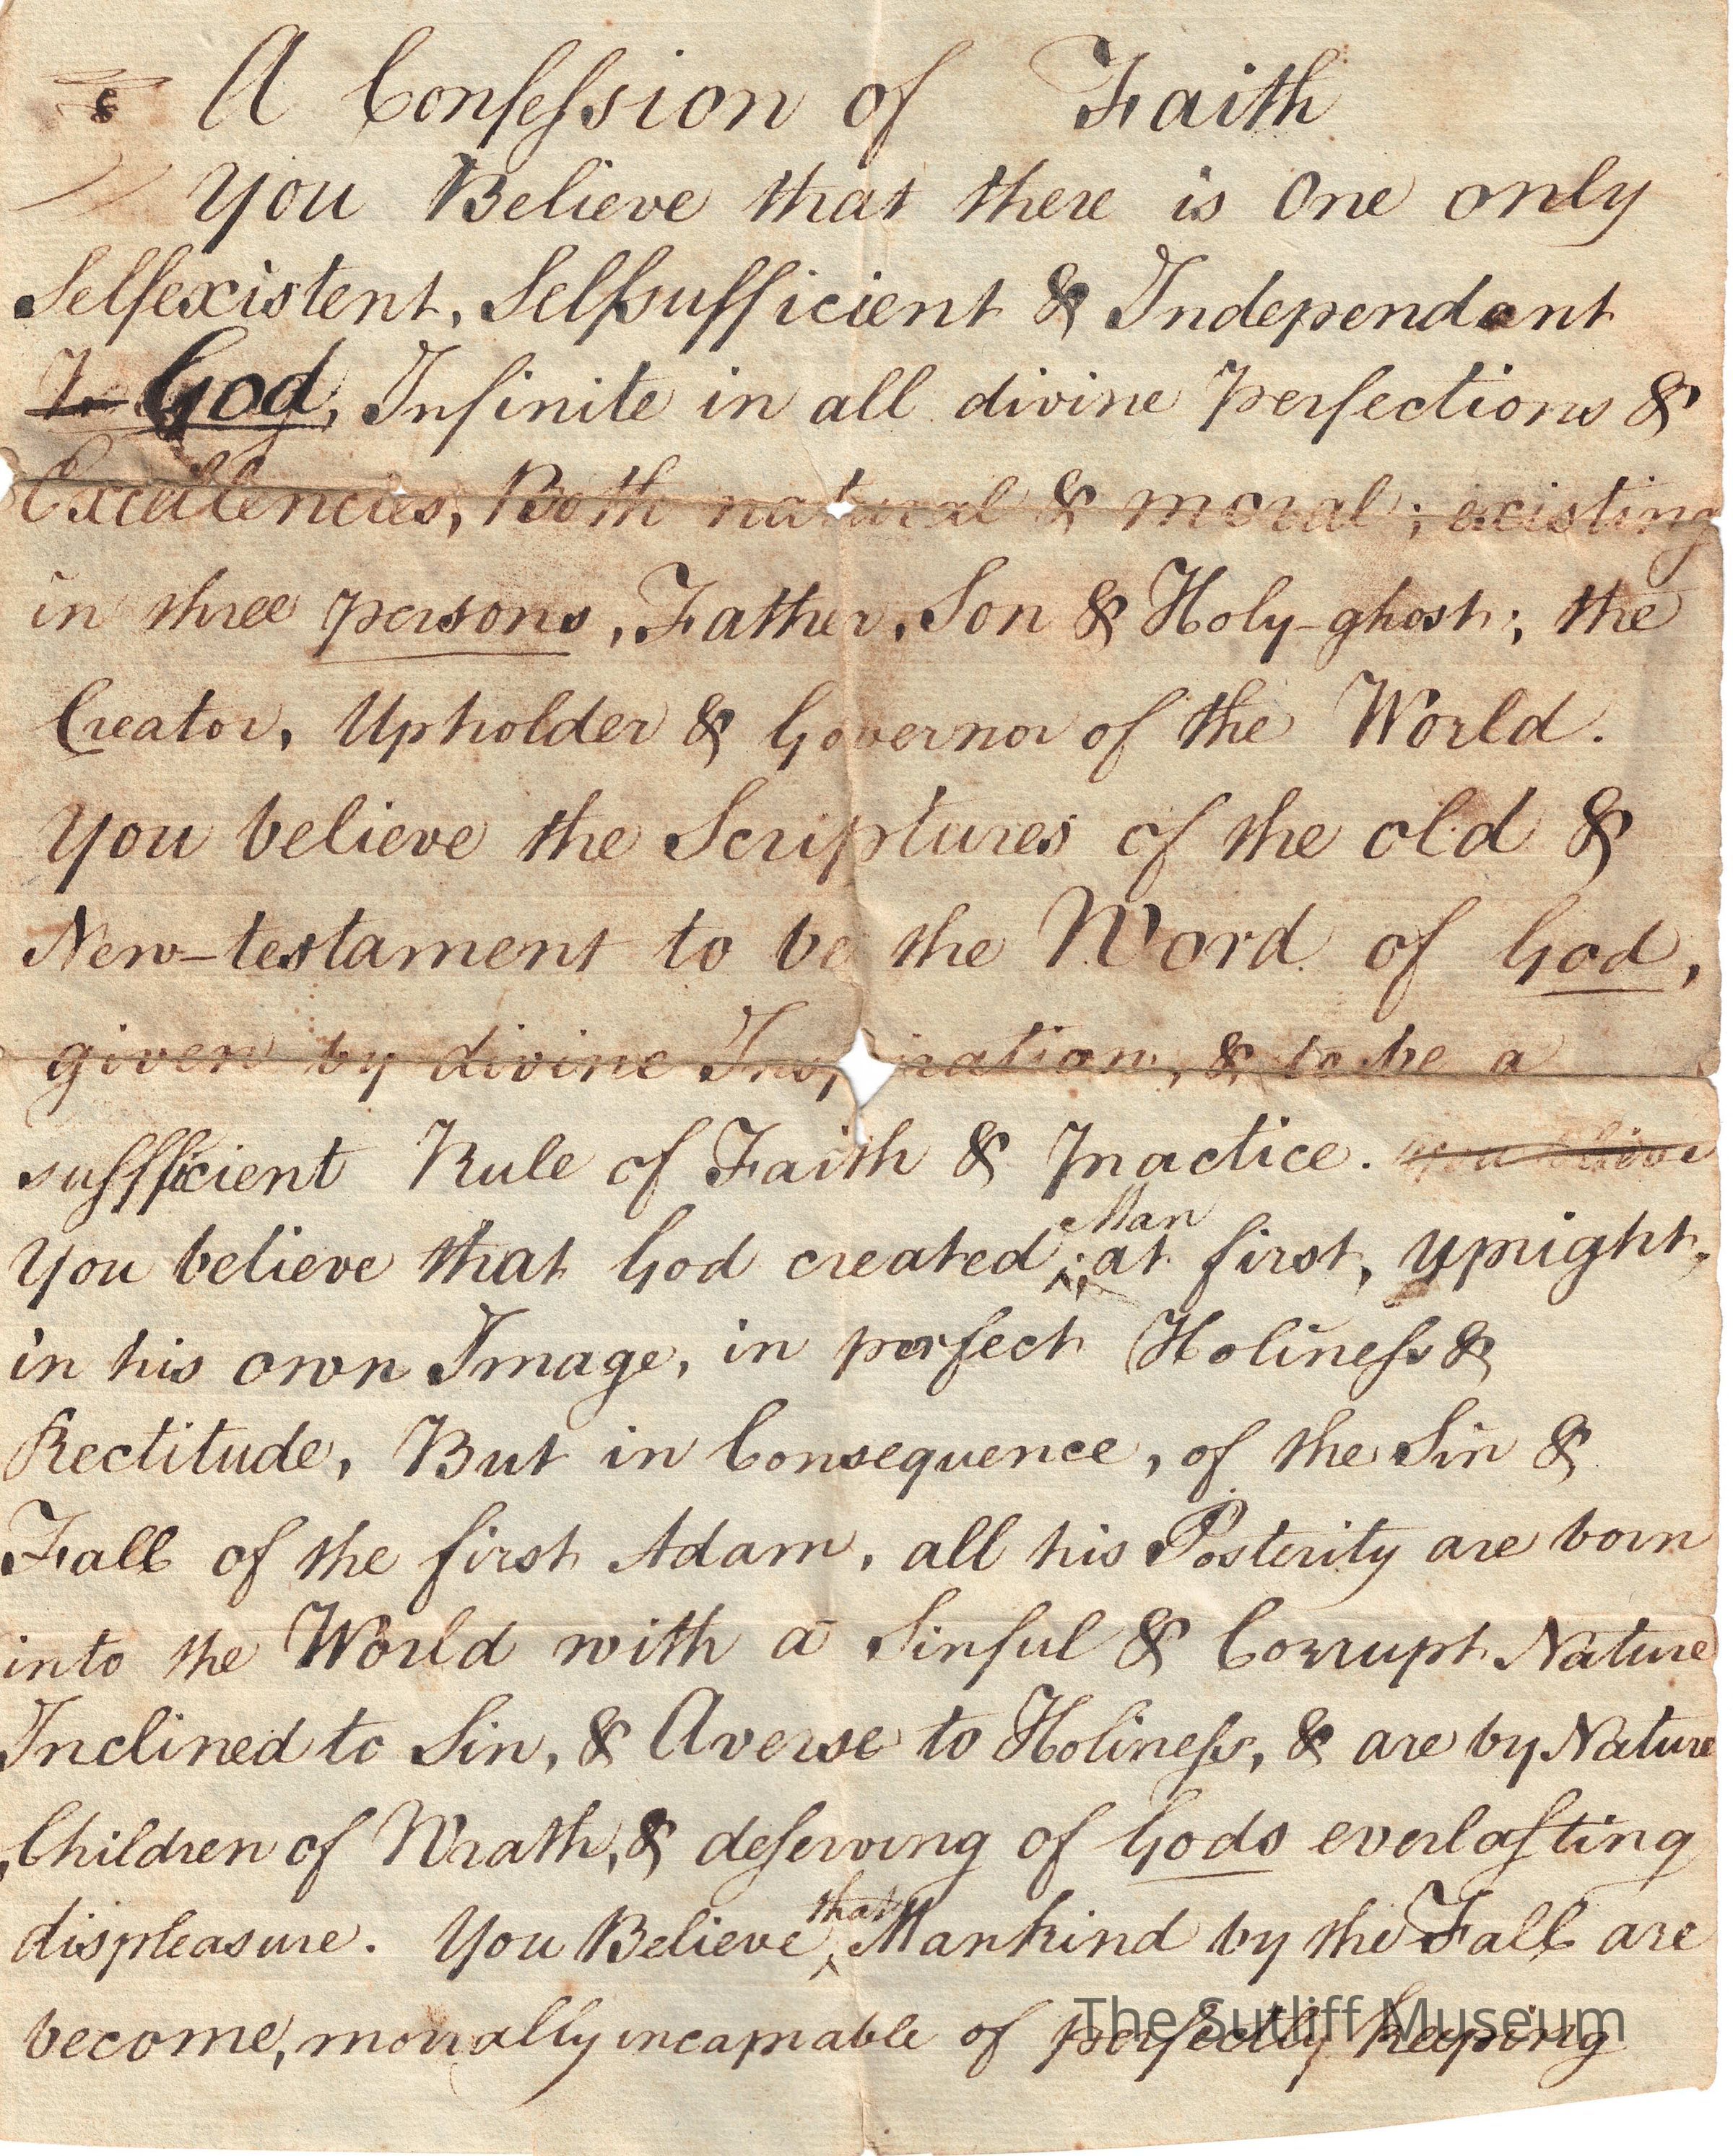 A Confeſsion of Faith
You Believe that there is One only
Selfexistent, Selfsufficient & Independant
In God, Infinite in all divine perfections &
Excellencies, Both natural & moral; existing
in three persons, Father, Son & Holy-ghost; the
Creator, Upholder & Governor of the World.
You believe the Scriptures of the old &
New-testament to be the Word of God,
given by divine Inspiration, & to be a
sufficient Rule of Faith & Practice. you
You believe that God created Man at first, upright,
in his own Image, in perfect Holineſs &
Rectitude, But in Consequence, of the Sin &
Fall of the first Adam, all his Posterity are born
into the World with a Sinful & Corrupt Nature
Inclined to Sin, & Averse to Holineſs, & are by Nature
Children of Wrath, & deſerving of Gods everlaſting
displeasure. You Believe that Mankind by the Fall are
become, morally incapable of perfectly keeping
The Sutliff Museum